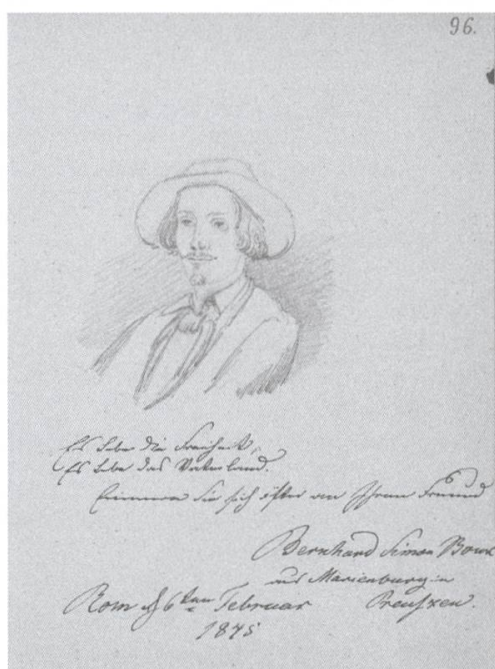 96.
Es lebe die Freiheit,
Es lebe das Vaterland.
Erinnern Sie sich öfter an Ihren Freund
Bernhard Simon
aus Marienburg in
Rom 6ten Februar Preußen.
1845